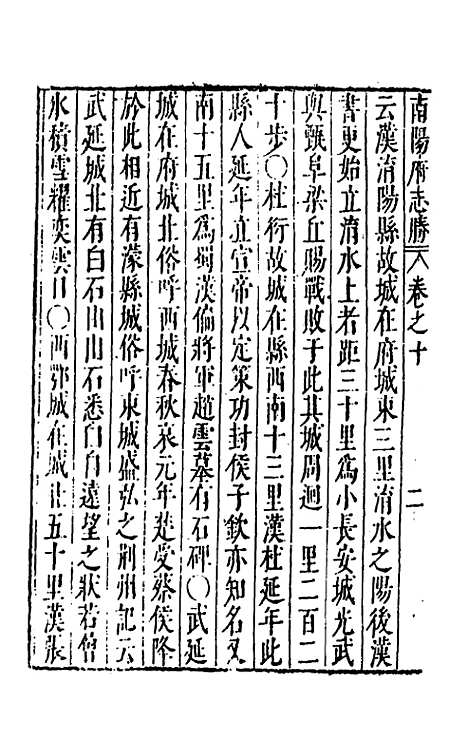 南陽府志勝 八 卷之十 二
云漢淯陽縣故城在府城東三里淯水之陽後漢
書更始立淯水上者距三十里爲小長安城光武
與甄阜梁丘賜戰敗于此其城周迴一里二百二
十步〇杜衍故城在縣西南十三里漢杜延年此
縣人延年立宣帝以定策功封侯子欽亦知名又
南十五里爲蜀漢偏將軍趙雲墓有石碑〇武延
城在府城北俗呼西城春秋哀元年楚受蔡侯降
於此相近有濛縣城俗呼東城盛弘之荆州記云
武延城北有白石山山石悉白自遠望之狀若曾
氷積雪耀奕雲日〇西鄂城在城北五十里漢張